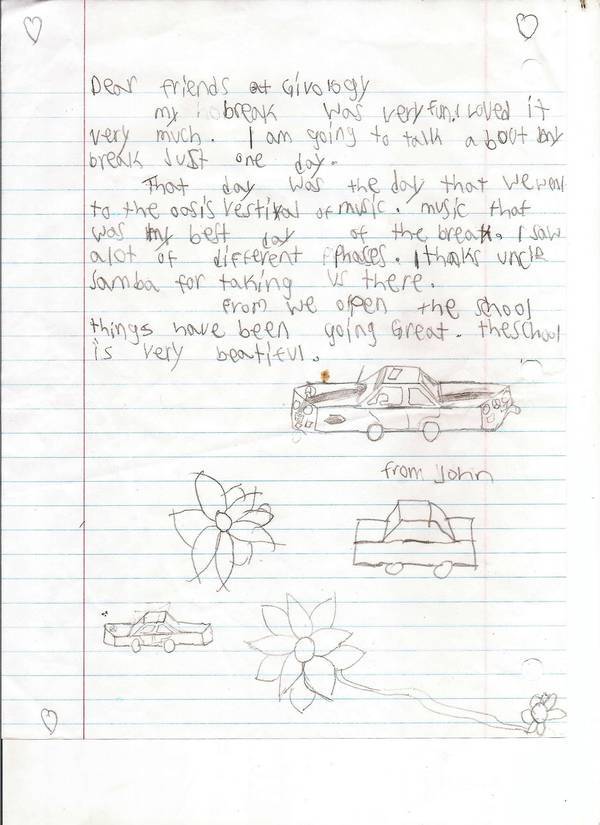 Dear friends at Givology
my break was very fun. I loved it
very much. I am going to talk about my
break Just one day.
That day was the day that we went
to the oasis vestival of music. music that
was my best day of the break. I saw
alot of different phases. I thanks uncle
samba for taking us there.
from we open the school
things have been going Great. the school
is very beatiful.
from John